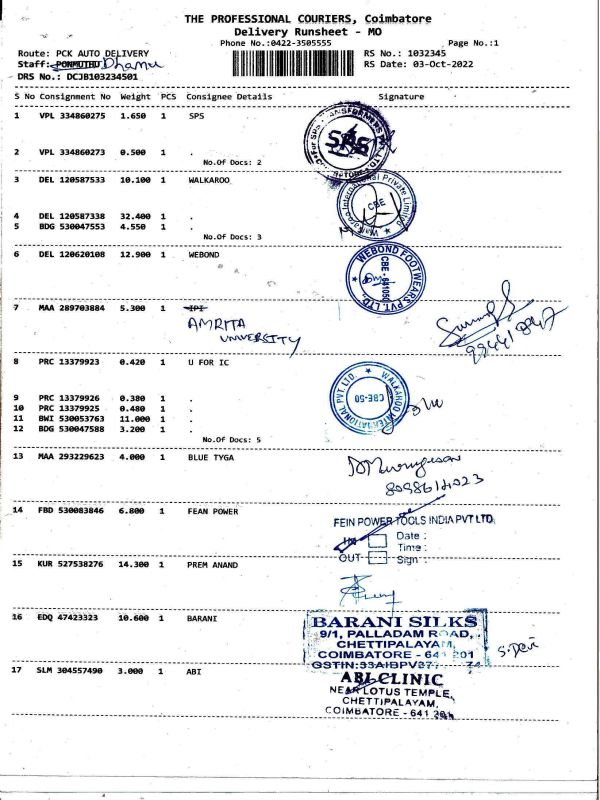 THE PROFESSIONAL COURIERS, Coimbatore
Delivery Runsheet - MO
Phone No.:0422-3505555 Page No.:1
Route: PCK AUTO DELIVERY RS No.: 1032345
Staff: PONMUTHU Dhamu RS Date: 03-Oct-2022
DRS No.: DCJB103234501
S No Consignment No Weight PCS Consignee Details Signature
1 VPL 334860275 1.650 1 SPS
SPS
2 VPL 334860273 0.500 1 .
No.Of Docs: 2
3 DEL 120587533 10.100 1 WALKAROO
Walkaroo International Private Limited
CBE
4 DEL 120587338 32.400 1 .
5 BDG 530047553 4.550 1 .
No.Of Docs: 3
6 DEL 120620108 12.900 1 WEBOND
WEBOND FOOTWEARS PVT. LTD.
CBE - 641050
7 MAA 289703884 5.300 1 IPI
AMRITA
UNIVERSITY
8 PRC 13379923 0.420 1 U FOR IC
WALKAROO INTERNATIONAL PVT. LTD.
CBE-50
9 PRC 13379926 0.380 1 .
10 PRC 13379925 0.480 1 .
11 BWI 530053763 11.000 1 .
12 BDG 530047588 3.200 1 .
No.Of Docs: 5
13 MAA 293229623 4.000 1 BLUE TYGA
14 FBD 530083846 6.800 1 FEAN POWER
FEIN POWER TOOLS INDIA PVT LTD
IN Date :
Time :
OUT Sign :
15 KUR 527538276 14.300 1 PREM ANAND
16 EDQ 47423323 10.600 1 BARANI
BARANI SILKS
9/1, PALLADAM ROAD,
CHETTIPALAYAM,
COIMBATORE - 641 201
S. Devi
17 SLM 304557490 3.000 1 ABI
ABI CLINIC
NEAR LOTUS TEMPLE,
CHETTIPALAYAM,
COIMBATORE - 641 201